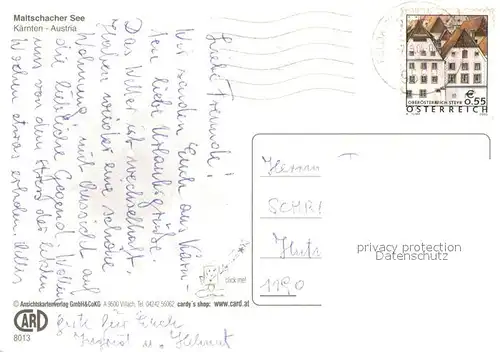 Maltschacher See
Kärnten - Austria
Liebe Freunde!
Wir senden Euch aus Kärn-
ten liebe Urlaubsgrüße.
Das Wetter ist wechselhaft.
Haben wieder eine schöne
Wohnung mit Aussicht auf
die liebliche Gegend. Wollen
uns von dem Stress der letzten
Wochen etwas erholen. Alles
Gute für Euch
Ingrid u. Helmut
€ 0,55
OBERÖSTERREICH STEYR
ÖSTERREICH
Herrn
1190
privacy protection
Datenschutz
click me!
© Ansichtskartenverlag GmbH&CoKG A 9500 Villach, Tel. 04242 56062 cardy's shop: www.card.at
CARD
8013